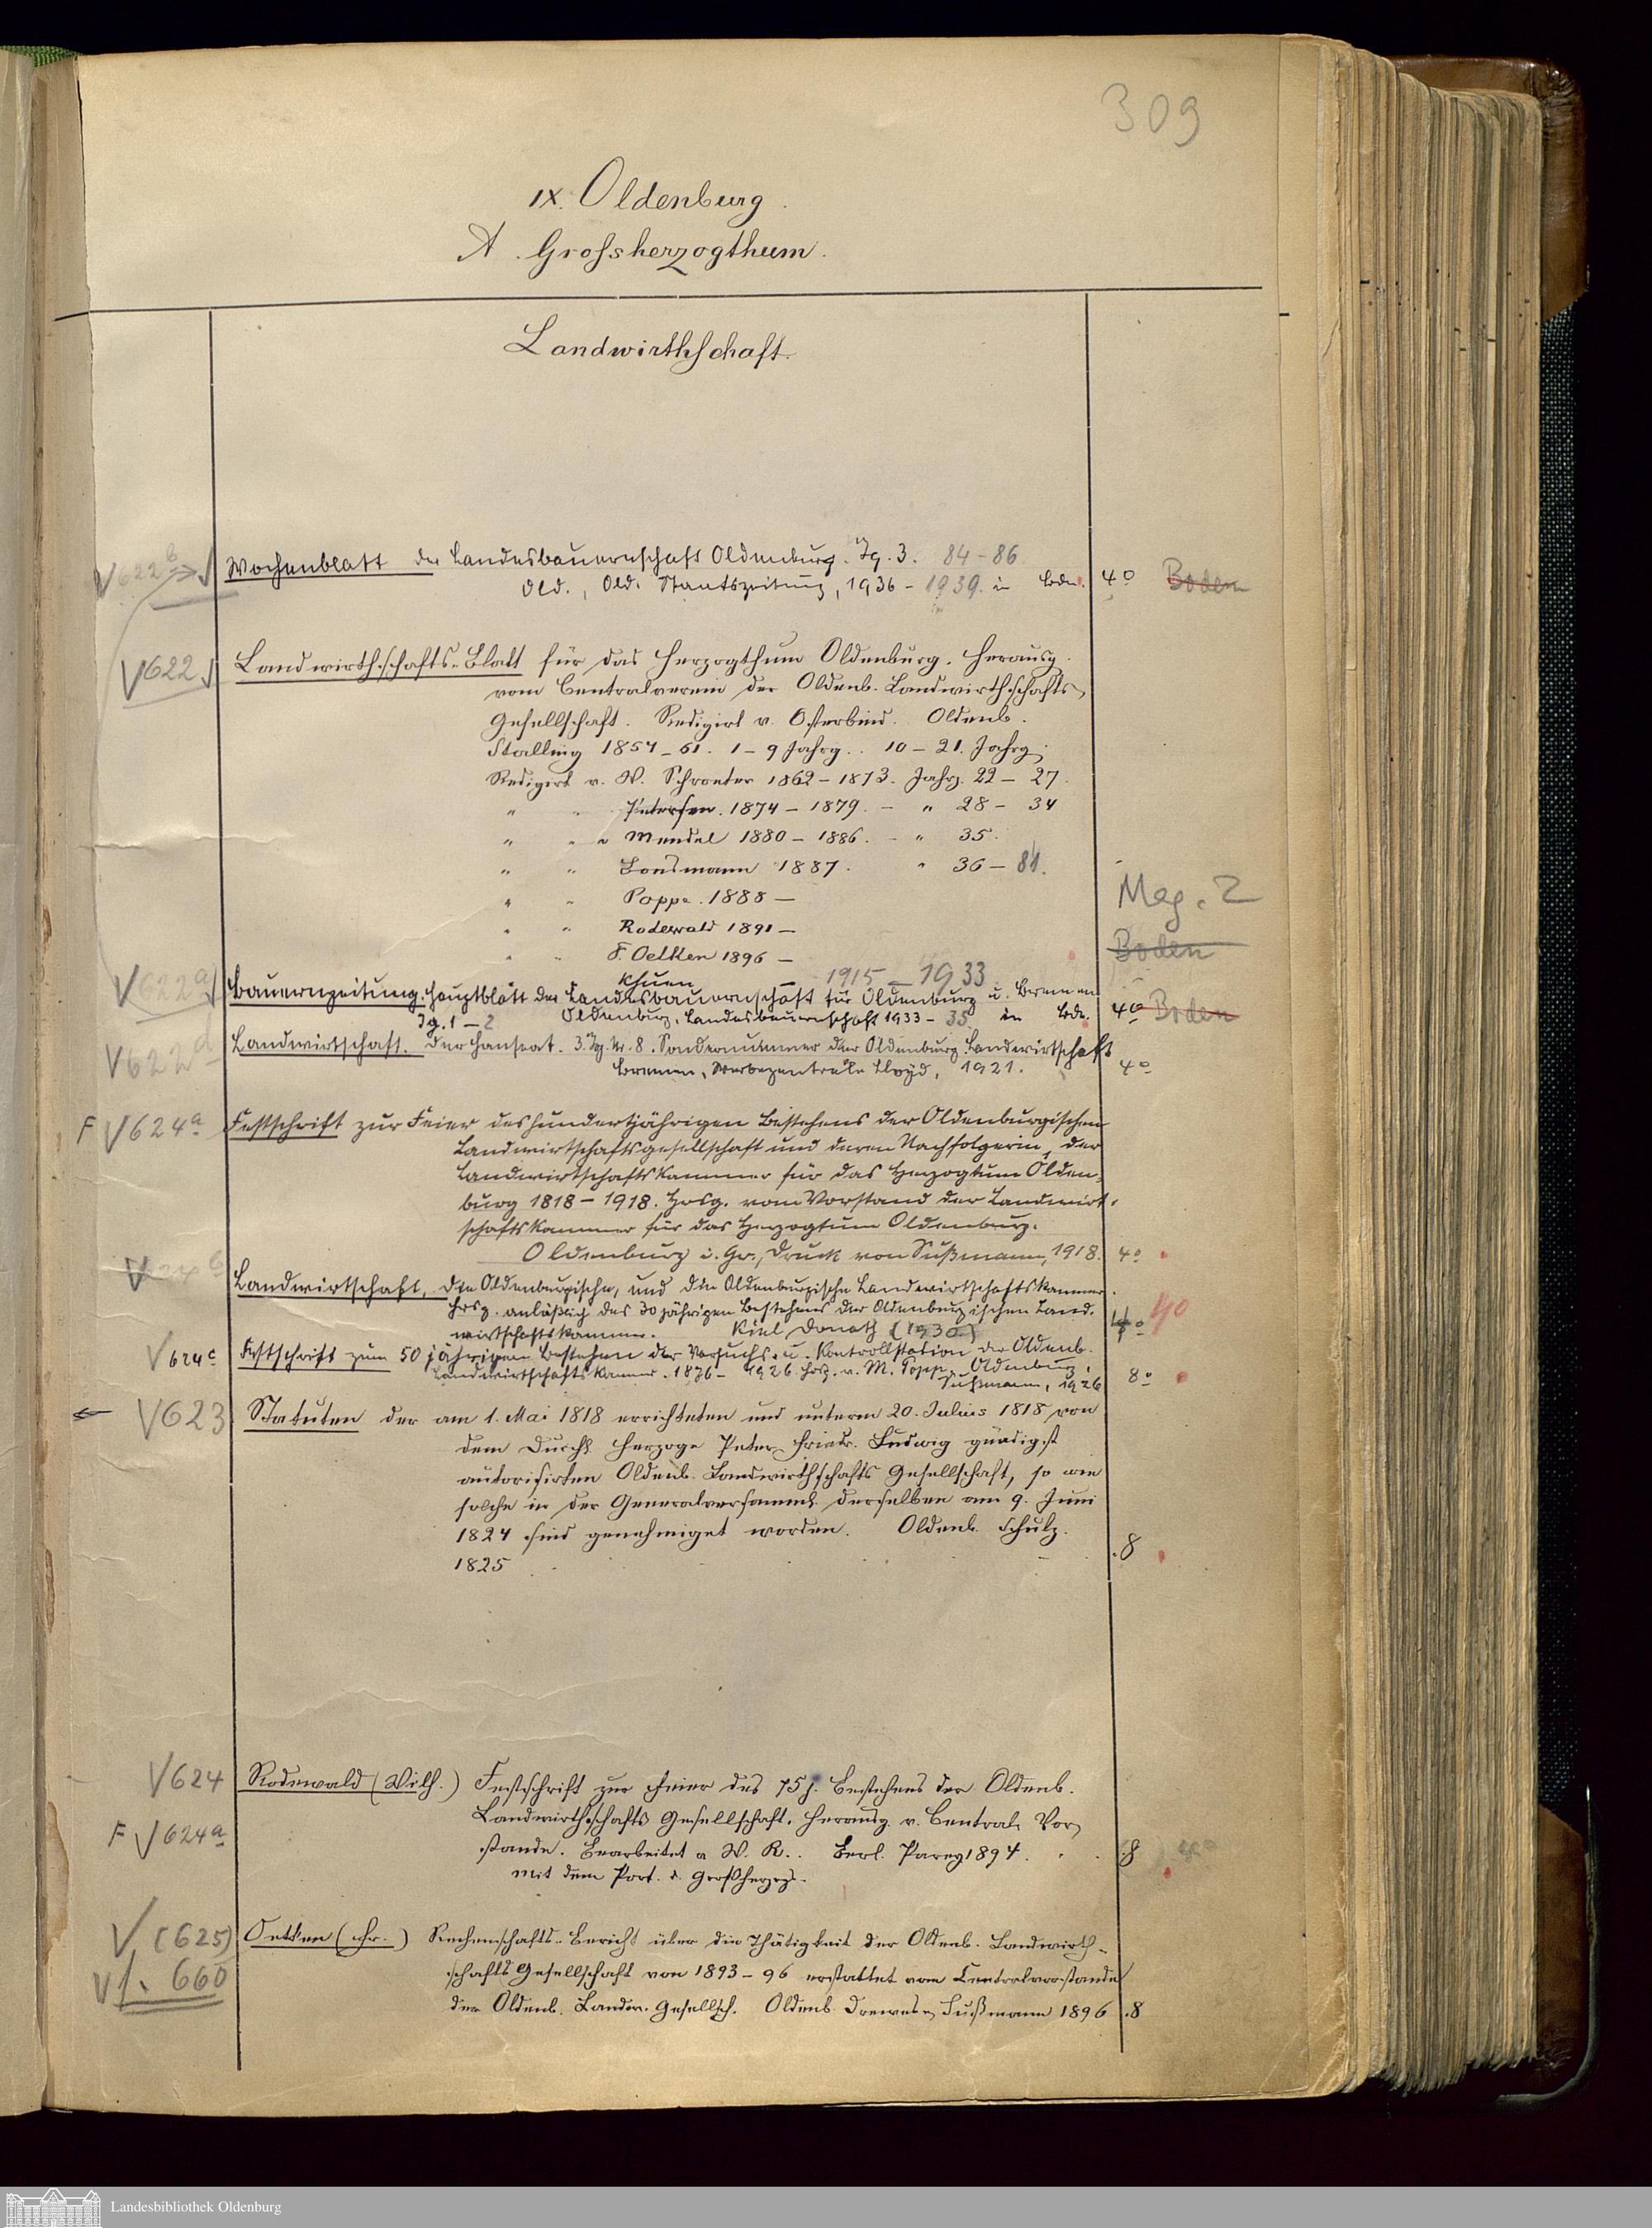 309
IX. Oldenburg.
A. Grossherzogthum.
Landwirthschaft.
V 622b Wochenblatt der Landesbauernschaft Oldenburg. Jg. 3. 84-86
Old., Old. Staatszeitung, 1936-1939. in Bdn. 4o Boden
V 622 Landwirthschafts-Blatt für das Herzogthum Oldenburg. Herausg.
vom Centralverein der Oldenb. Landwirthschafts-
Gesellschaft. Redigirt v. Osterbind. Oldenb.
Stalling 1854-61. 1-9 Jahrg.. 10-21. Jahrg.
Redigirt v. W. Schroeter 1862-1873. Jahrg. 22-27.
" " Petersen. 1874-1879. - " 28-34
" " " Mendel 1880-1886. - " 35.
" " 1887. " 36-81.
" " Poppe. 1888-
" " Rodewald 1891-
Mag. 2
" " F. Oetken 1896-
Boden
Khuen - 1915-1933
V 622a Bauernzeitung. Hauptblatt der Landesbauernschaft für Oldenburg u. Bremen
Jg. 1-2 Oldenburg, Landesbauernschaft 1933-35 in Bdn. 4o Boden
V 622d Landwirtschaft. Der Hanseat. 3. Jg. Nr. 8. Sondernummer der Oldenburg. Landwirtschaft
Bremen, Werbezentrale Lloyd, 1921. 4o
F V 624a Festschrift zur Feier des hundertjährigen Bestehens der Oldenburgischen
Landwirtschaftsgesellschaft und deren Nachfolgerin, der
Landwirtschaftskammer für das Herzogtum Olden-
burg 1818-1918. Hrsg. vom Vorstand der Landwirt-
schaftskammer für das Herzogtum Oldenburg.
Oldenburg i. Gr., Druck von Sußmann, 1918. 4o
V 24 b Landwirtschaft, die Oldenburgische, und die Oldenburgische Landwirtschaftskammer.
Hrsg. anläßlich des 30 jährigen Bestehens der Oldenburgischen Land-
wirtschaftskammer. Kiel Donath (1930) 4o 40
V 624c Festschrift zum 50 jährigen Bestehen der Versuchs- u. Kontrollstation der Oldenb.
Landwirtschaftskammer. 1876-1926. Hrsg. v. M. Popp. Oldenburg,
Sußmann, 1926 8o
V 623 Statuten der am 1. Mai 1818 errichteten und unterm 20. Julius 1818 von
dem Durchl. Herzoge Peter Friedr. Ludwig gnädigst
autorisirten Oldenb. Landwirthschafts Gesellschaft, so wie
solche in der Generalversamml. derselben am 9. Juni
1824 sind genehmiget worden. Oldenb. Schulz.
1825 .8
V 624 Rodewald (Wilh.) Festschrift zur Feier des 75j. Bestehens der Oldenb.
Landwirthschafts Gesellschaft. Herausg. v. Central-Vor-
F V 624a stande. Bearbeitet v. W. R.. Berl. Parey 1894. .8
mit dem Port. d. Großherzogs.
V (625) Oetken (Fr.) Rechenschafts-Bericht über die Thätigkeit der Oldenb. Landwirth-
V 1. 660 schafts Gesellschaft von 1893-96 erstattet vom Centralvorstande
der Oldenb. Landw. Gesellsch. Oldenb. Sußmann 1896 .8
Landesbibliothek Oldenburg